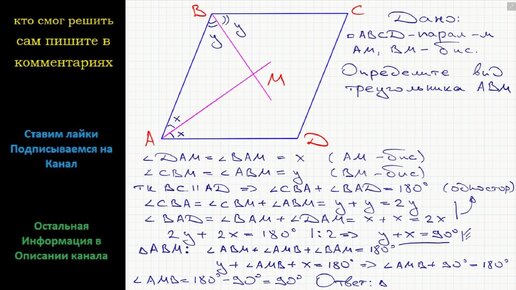 кто смог решить
сам пишите в
комментариях
Ставим лайки
Подписываемся на
Канал
Остальная
Информация в
Описании канала
B
C
y
y
M
x
x
A
D
Дано:
▱ABCD-парал-м
AM, BM - бис.
Определите вид
треугольника ABM
∠DAM = ∠BAM = x (AM - бис)
∠CBM = ∠ABM = y (BM - бис)
т.к BC || AD ⇒ ∠CBA + ∠BAD = 180° (одностор)
∠CBA = ∠CBM + ∠ABM = y + y = 2y
∠BAD = ∠BAM + ∠DAM = x + x = 2x
2y + 2x = 180° |:2 ⇒ y + x = 90°
△ABM: ∠ABM + ∠AMB + ∠BAM = 180°
y + ∠AMB + x = 180° ⇒ ∠AMB + 90° = 180°
∠AMB = 180° - 90° = 90° Ответ: △